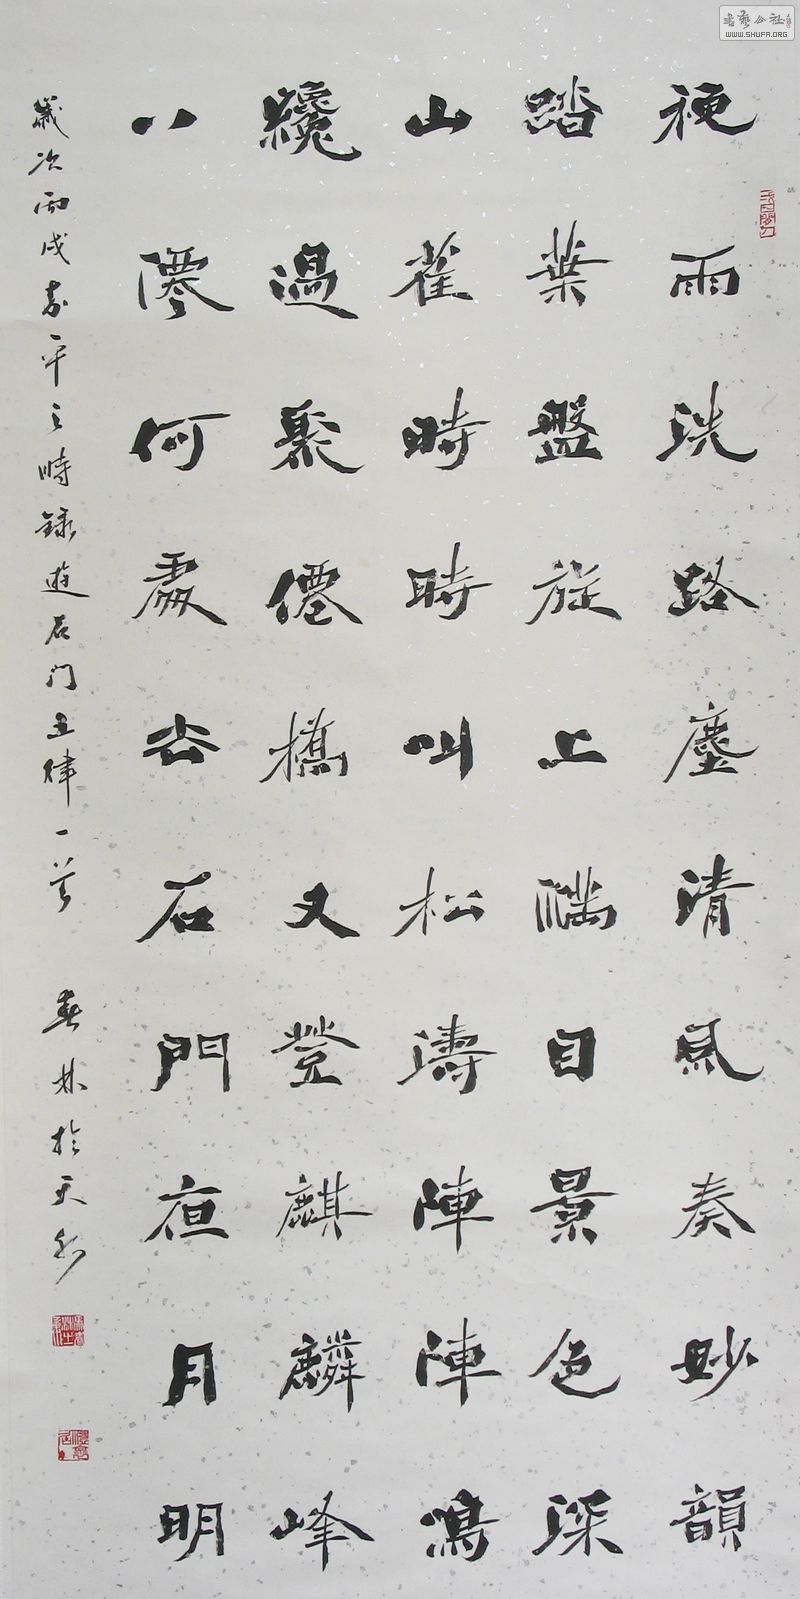 雨洗路塵清風奏妙韻
踏葉盤旋上滿目景色深
山雀時時叫松濤陣陣鳴
纔過聚僊橋又登麒麟峰
八僊何處去石門夜月明
歲次丙戌嘉平之時錄遊石门五律一首 春林於天水
書藝公社
WWW.SHUFA.ORG